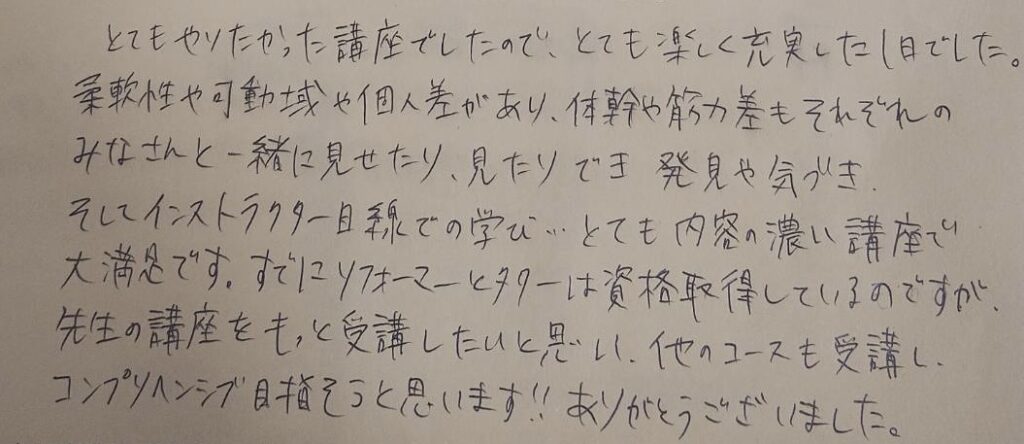 とてもやりたかった講座でしたので、とても楽しく充実した1日でした。
柔軟性や可動域や個人差があり、体幹や筋力差もそれぞれの
みなさんと一緒に見せたり、見たりでき 発見や気づき、
そしてインストラクター目線での学び… とても内容の濃い講座で
大満足です。すでにリフォーマーとタワーは資格取得しているのですが、
先生の講座をもっと受講したいと思い、他のコースも受講し、
コンプリヘンシブ目指そうと思います!! ありがとうございました。